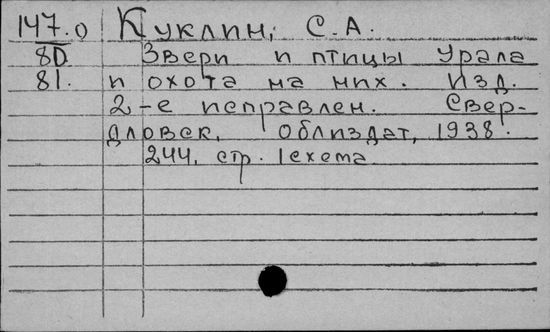 147.0 Куклин, С.А.
80 Звери и птицы Урала
81. и охота на них. Изд.
2-е исправлен. Свер-
дловск, Облиздат, 1938.
244, стр. 1схема